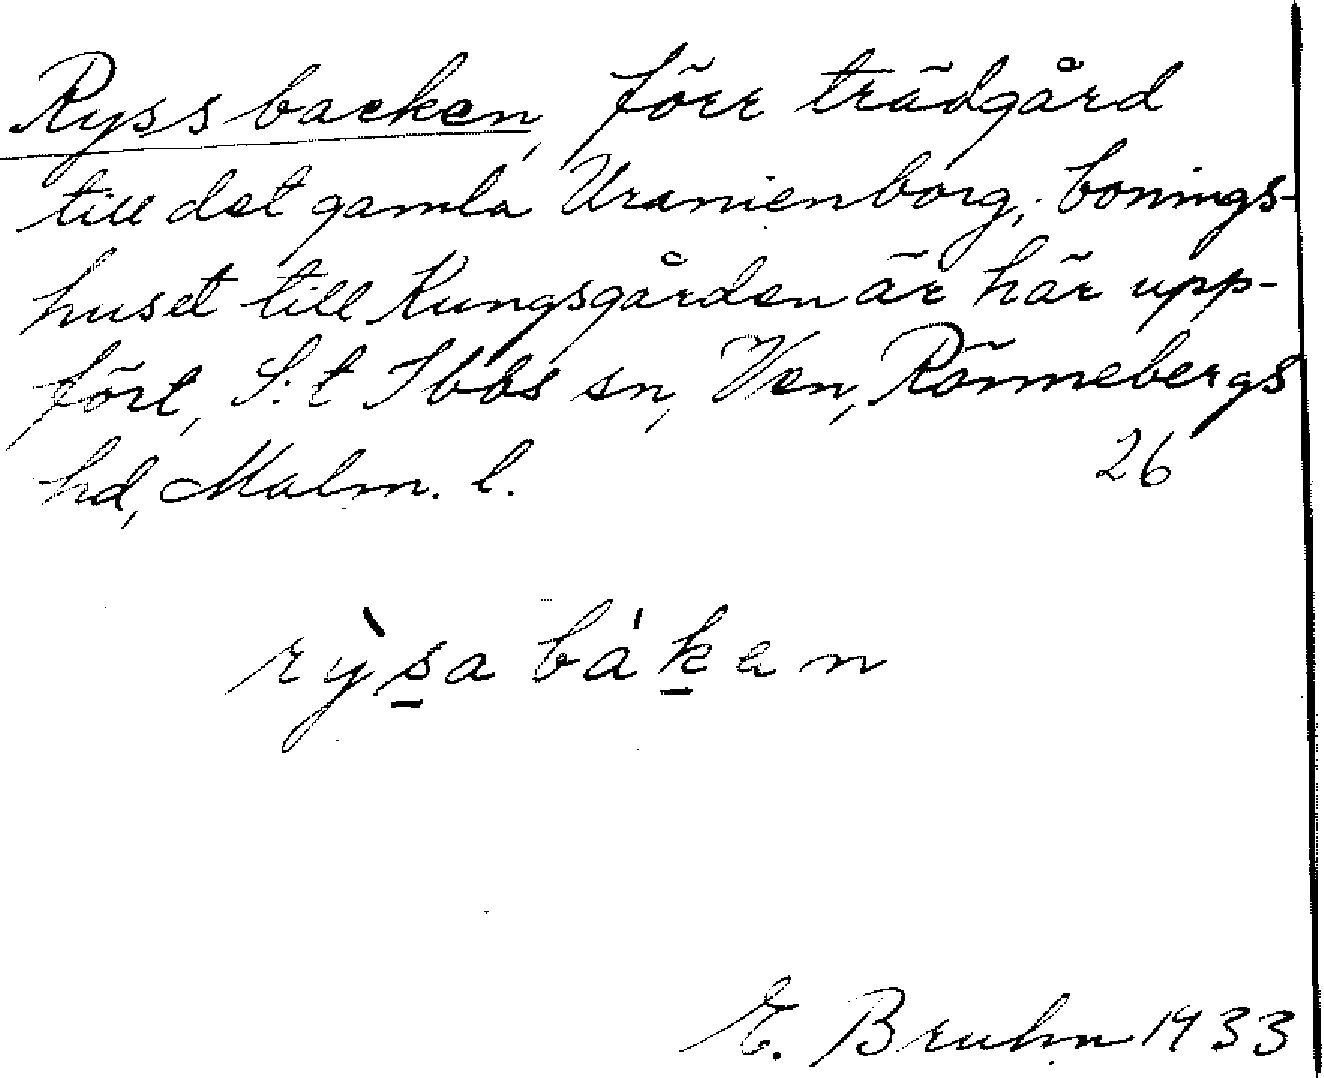 Ryssbacken, förr trädgård
till det gamla Uranienborg, bonings-
huset till Kungsgården är här upp-
fört, S:t Ibbs sn, Ven, Rönnebergs
hd, Malm. l. 26
rỳs̲a bák̲en
E. Bruhn 1933